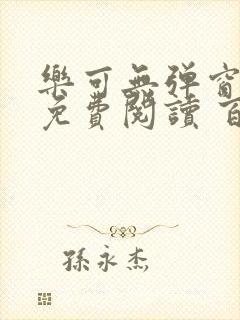 樂可無彈窗
免費閱讀 百
孫永杰